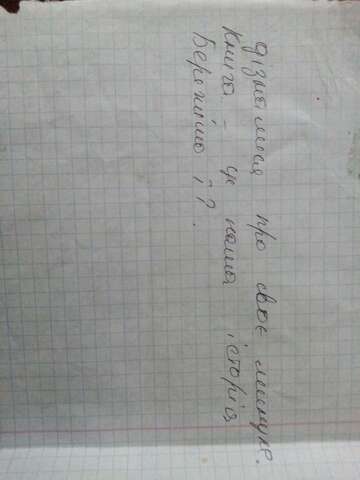 дізнаємося про своє минуле.
Книга - це наша історія
Бережімо її.